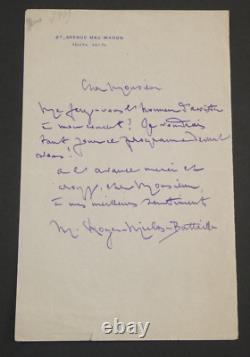 27, AVENUE MAC-MAHON
Cher Monsieur
Me ferez-vous l'honneur d'assister
à mon concert? Je voudrais
tant jouer ce programme devant
vous!
à l'avance merci et
croyez, cher Monsieur,
à mes meilleurs sentiments
M. Roger-Miclos-Battaille